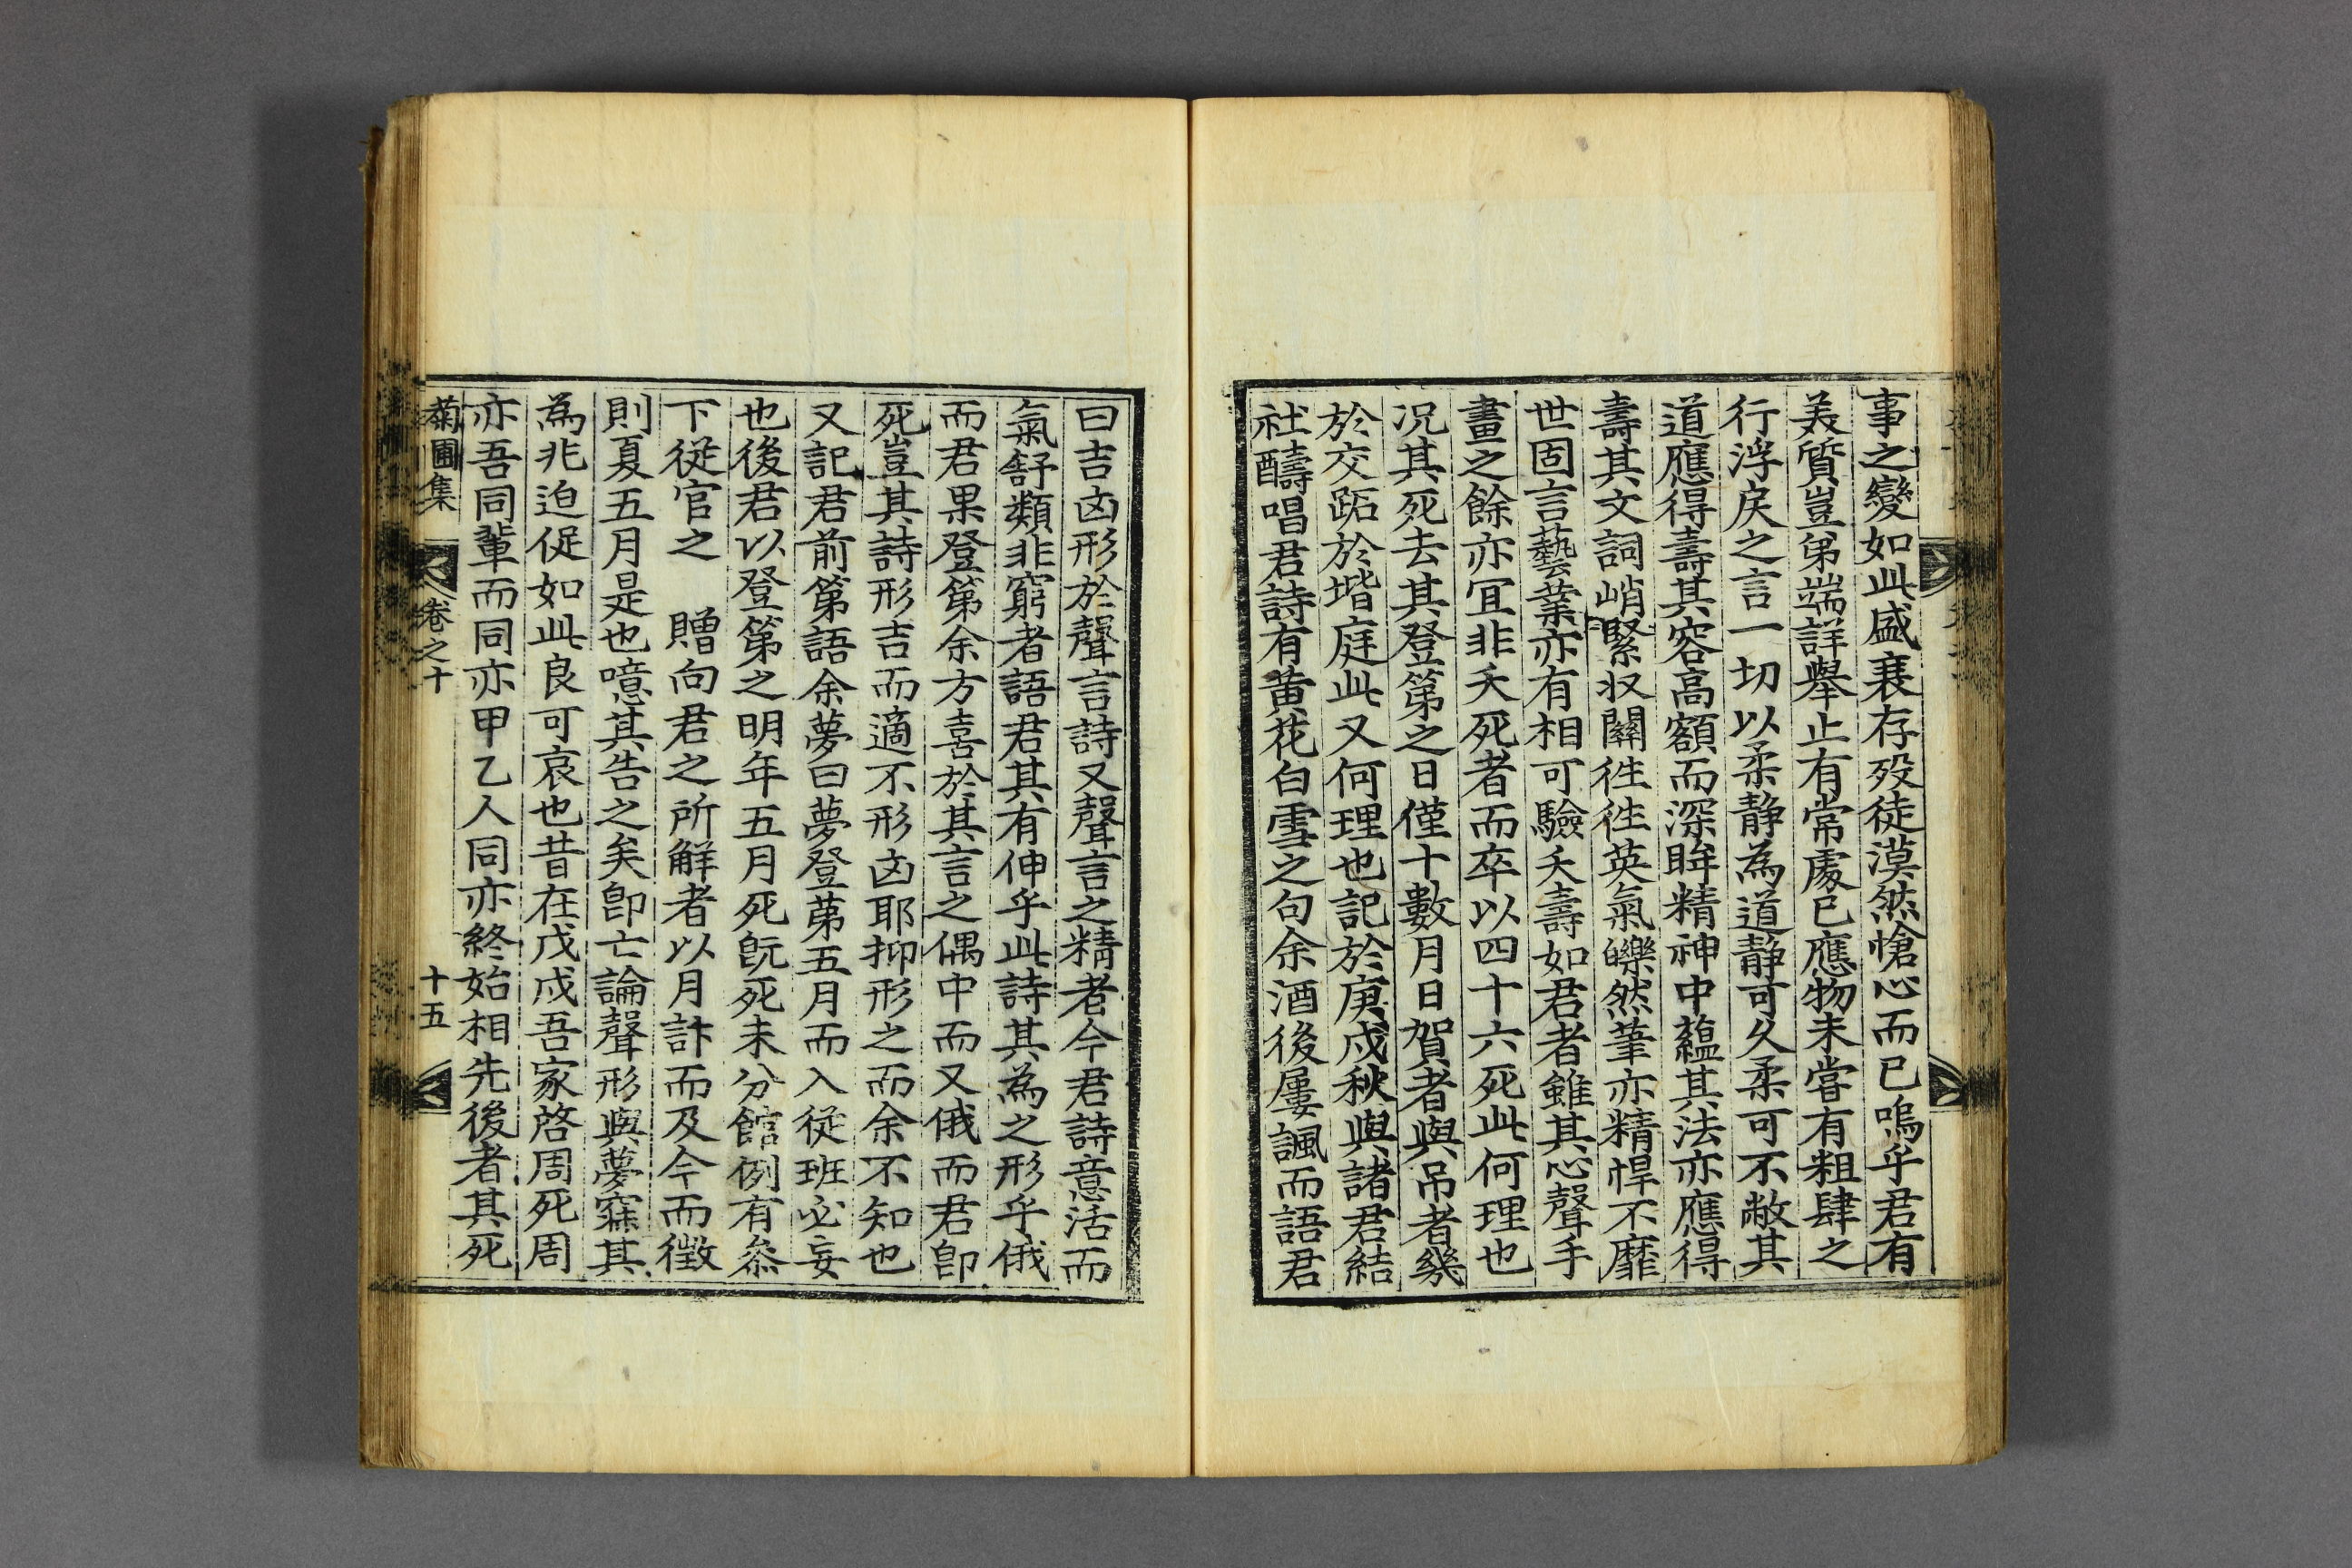 事之變如此盛衰存歿徒漠然愴心而已嗚乎君有
美質豈弟端詳擧止有常處已應物未嘗有粗肆之
行浮戾之言一切以柔静為道静可久柔可不敝其
道應得壽其容高額而深眸精神中蘊其法亦應得
壽其文詞峭緊収闢徃徃英氣皪然筆亦精悍不靡
世固言藝業亦有相可驗夭壽如君者雖其心聲手
畫之餘亦冝非夭死者而卒以四十六死此何理也
况其死去其登第之日僅十數月日賀者與吊者幾
於交跖於堦庭此又何理也記於庚戌秋與諸君結
社醻唱君詩有黄花白雪之句余酒後屢諷而語君
曰吉凶形於聲言詩又聲言之精者今君詩意活而
氣舒類非窮者語君其有伸乎此詩其為之形乎俄
而君果登第余方喜於其言之偶中而又俄而君卽
死豈其詩形吉而適不形凶耶抑形之而余不知也
又記君前第語余夢曰夢登苐五月而入従班必妄
也後君以登第之明年五月死旣死未分館例有叅
下従官之 贈向君之所解者以月計而及今而徵
則夏五月是也噫其告之矣卽亡論聲形與夢寐其
為兆迫促如此良可哀也昔在戊戌吾家啓周死周
亦吾同輩而同亦甲乙人同亦終始相先後者其死
菊圃集 卷之十 十五